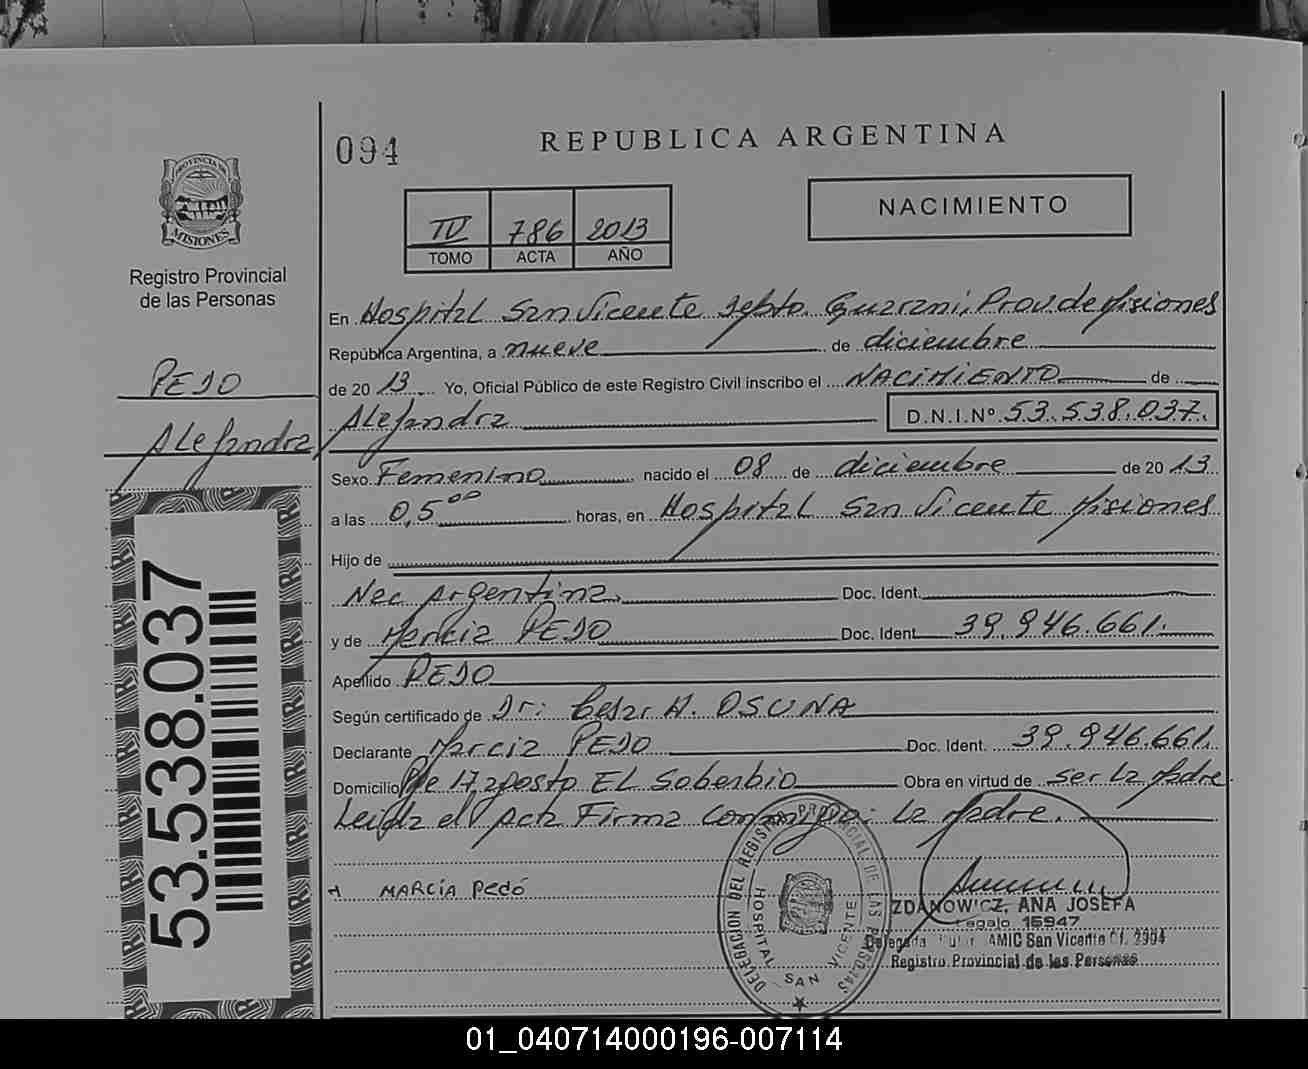 094
REPUBLICA ARGENTINA
PROVINCIA DE
MISIONES
Registro Provincial
de las Personas
NACIMIENTO
IV 786 2013
TOMO ACTA AÑO
En Hospital San Vicente Depto. Guarani, Prov. de Misiones
República Argentina, a nueve de diciembre
de 2013 Yo, Oficial Público de este Registro Civil inscribo el NACIMIENTO de
Alejandra D.N.I.Nº 53.538.037.
PEDO
Alejandra
Sexo Femenino nacido el 08 de diciembre de 2013
a las 0,5 00 horas, en Hospital San Vicente Misiones
Hijo de
Nac Argentina. Doc. Ident.
y de Marcia PEDO Doc. Ident. 39.946.661.
Apellido PEDO
Según certificado de Dr: Cesar A. OSUNA
Declarante Marcia PEDO Doc. Ident. 39.946.661.
Domicilio Pje 17 agosto EL Soberbio Obra en virtud de ser La Madre
Leida el Acta Firma conmigo: La Madre.
MARCÍA Pedó
53.538.037
DELEGACION DEL REGISTRO PROVINCIAL DE LAS PERSONAS
HOSPITAL SAN VICENTE
ZDANOWICZ, ANA JOSEFA
Legajo 15947
Delegada Titular AMIC San Vicente Of. 2904
Registro Provincial de las Personas
01_040714000196-007114